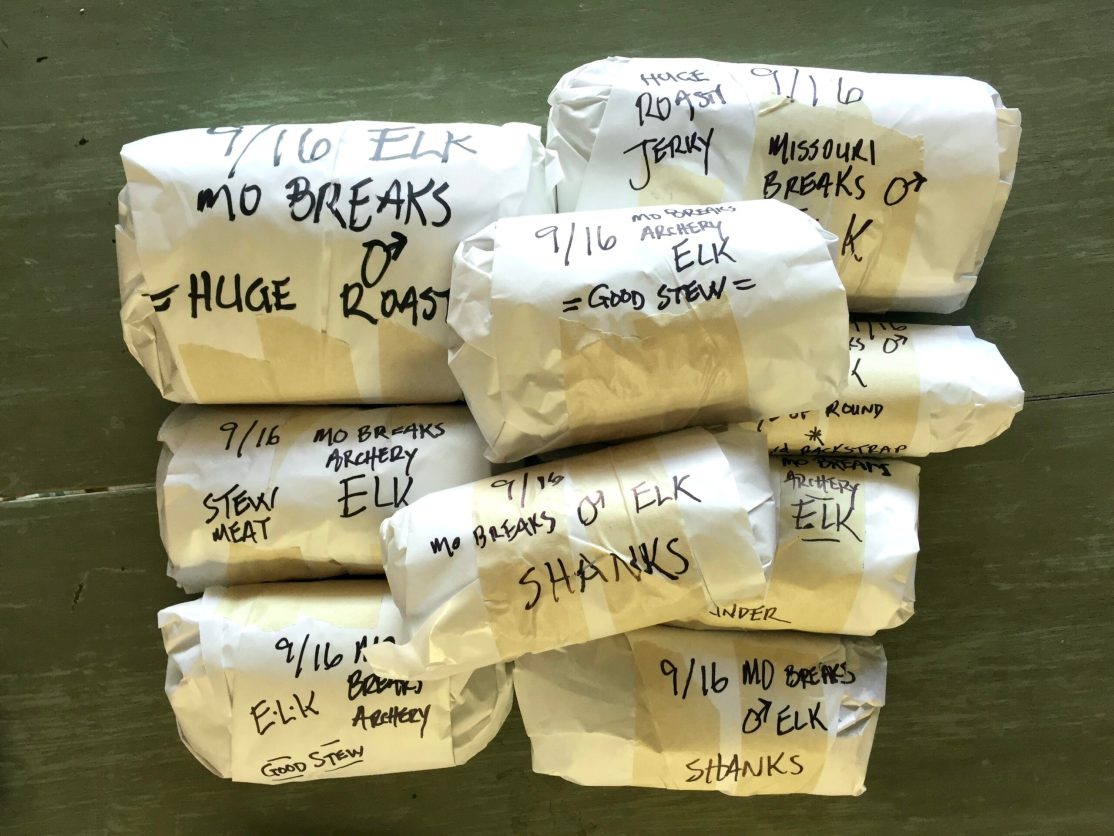 9/16 ELK
MO BREAKS
♂
=HUGE ROAST
HUGE
ROAST/
JERKY
9/16
MISSOURI
BREAKS ♂
9/16
MO BREAKS
ARCHERY
ELK
=GOOD STEW=
♂
OF ROUND
*
BACKSTRAP
9/16
MO BREAKS
ARCHERY
ELK
STEW
MEAT
9/16
MO BREAKS ♂ ELK
SHANKS
MO BREAKS
ARCHERY
ELK
9/16 MO
BREAKS
ARCHERY
E·L·K
GOOD STEW
9/16 MO BREAKS
♂ ELK
SHANKS